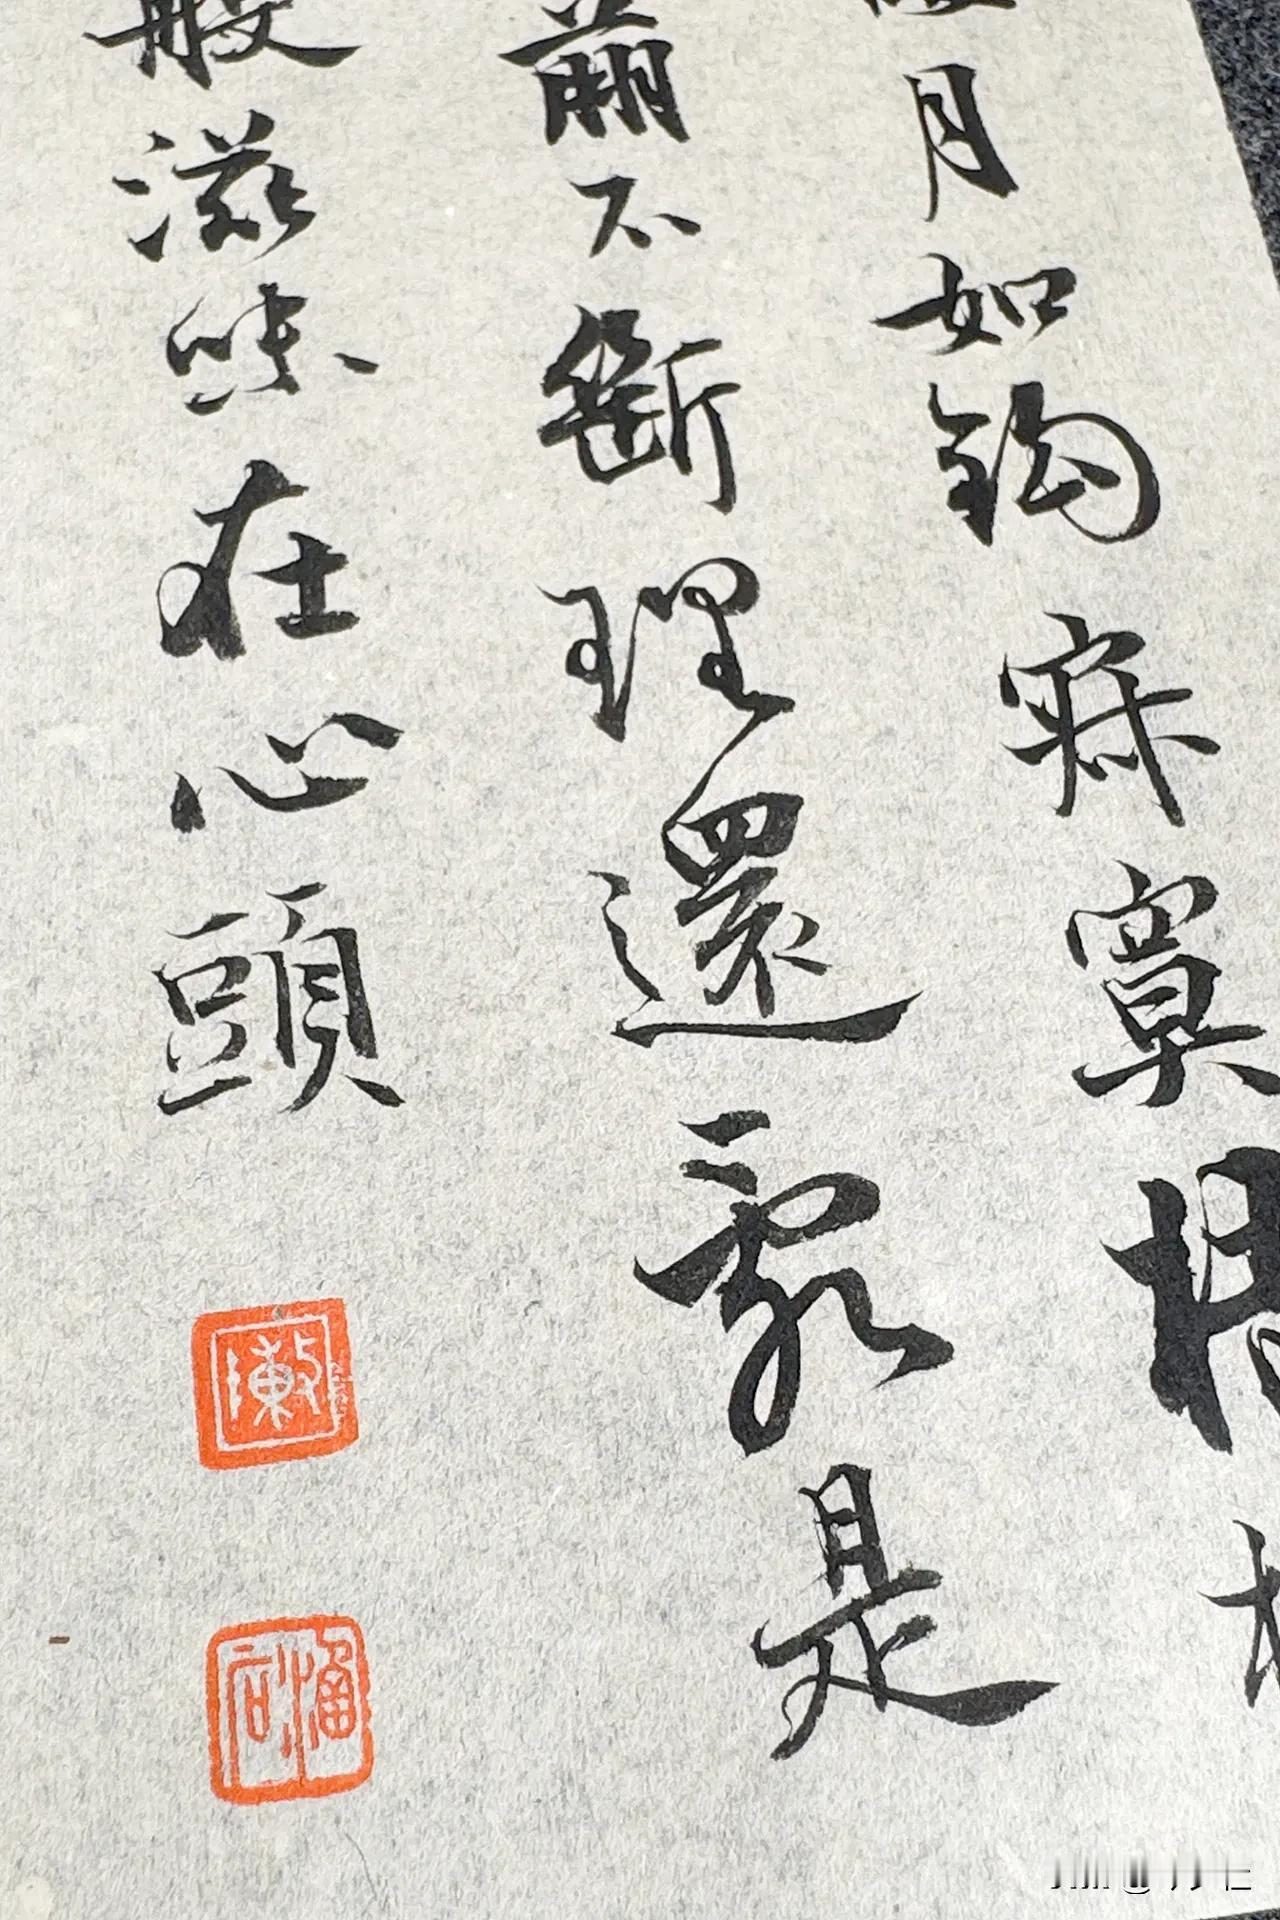 月如鉤寂寞
翦不斷理還亂是
般滋味在心頭